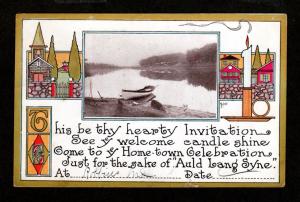 This be thy hearty Invitation
See ye welcome candle shine
Come to ye Home-town Celebration
Just for the sake of "Auld Lang Syne."
At Date